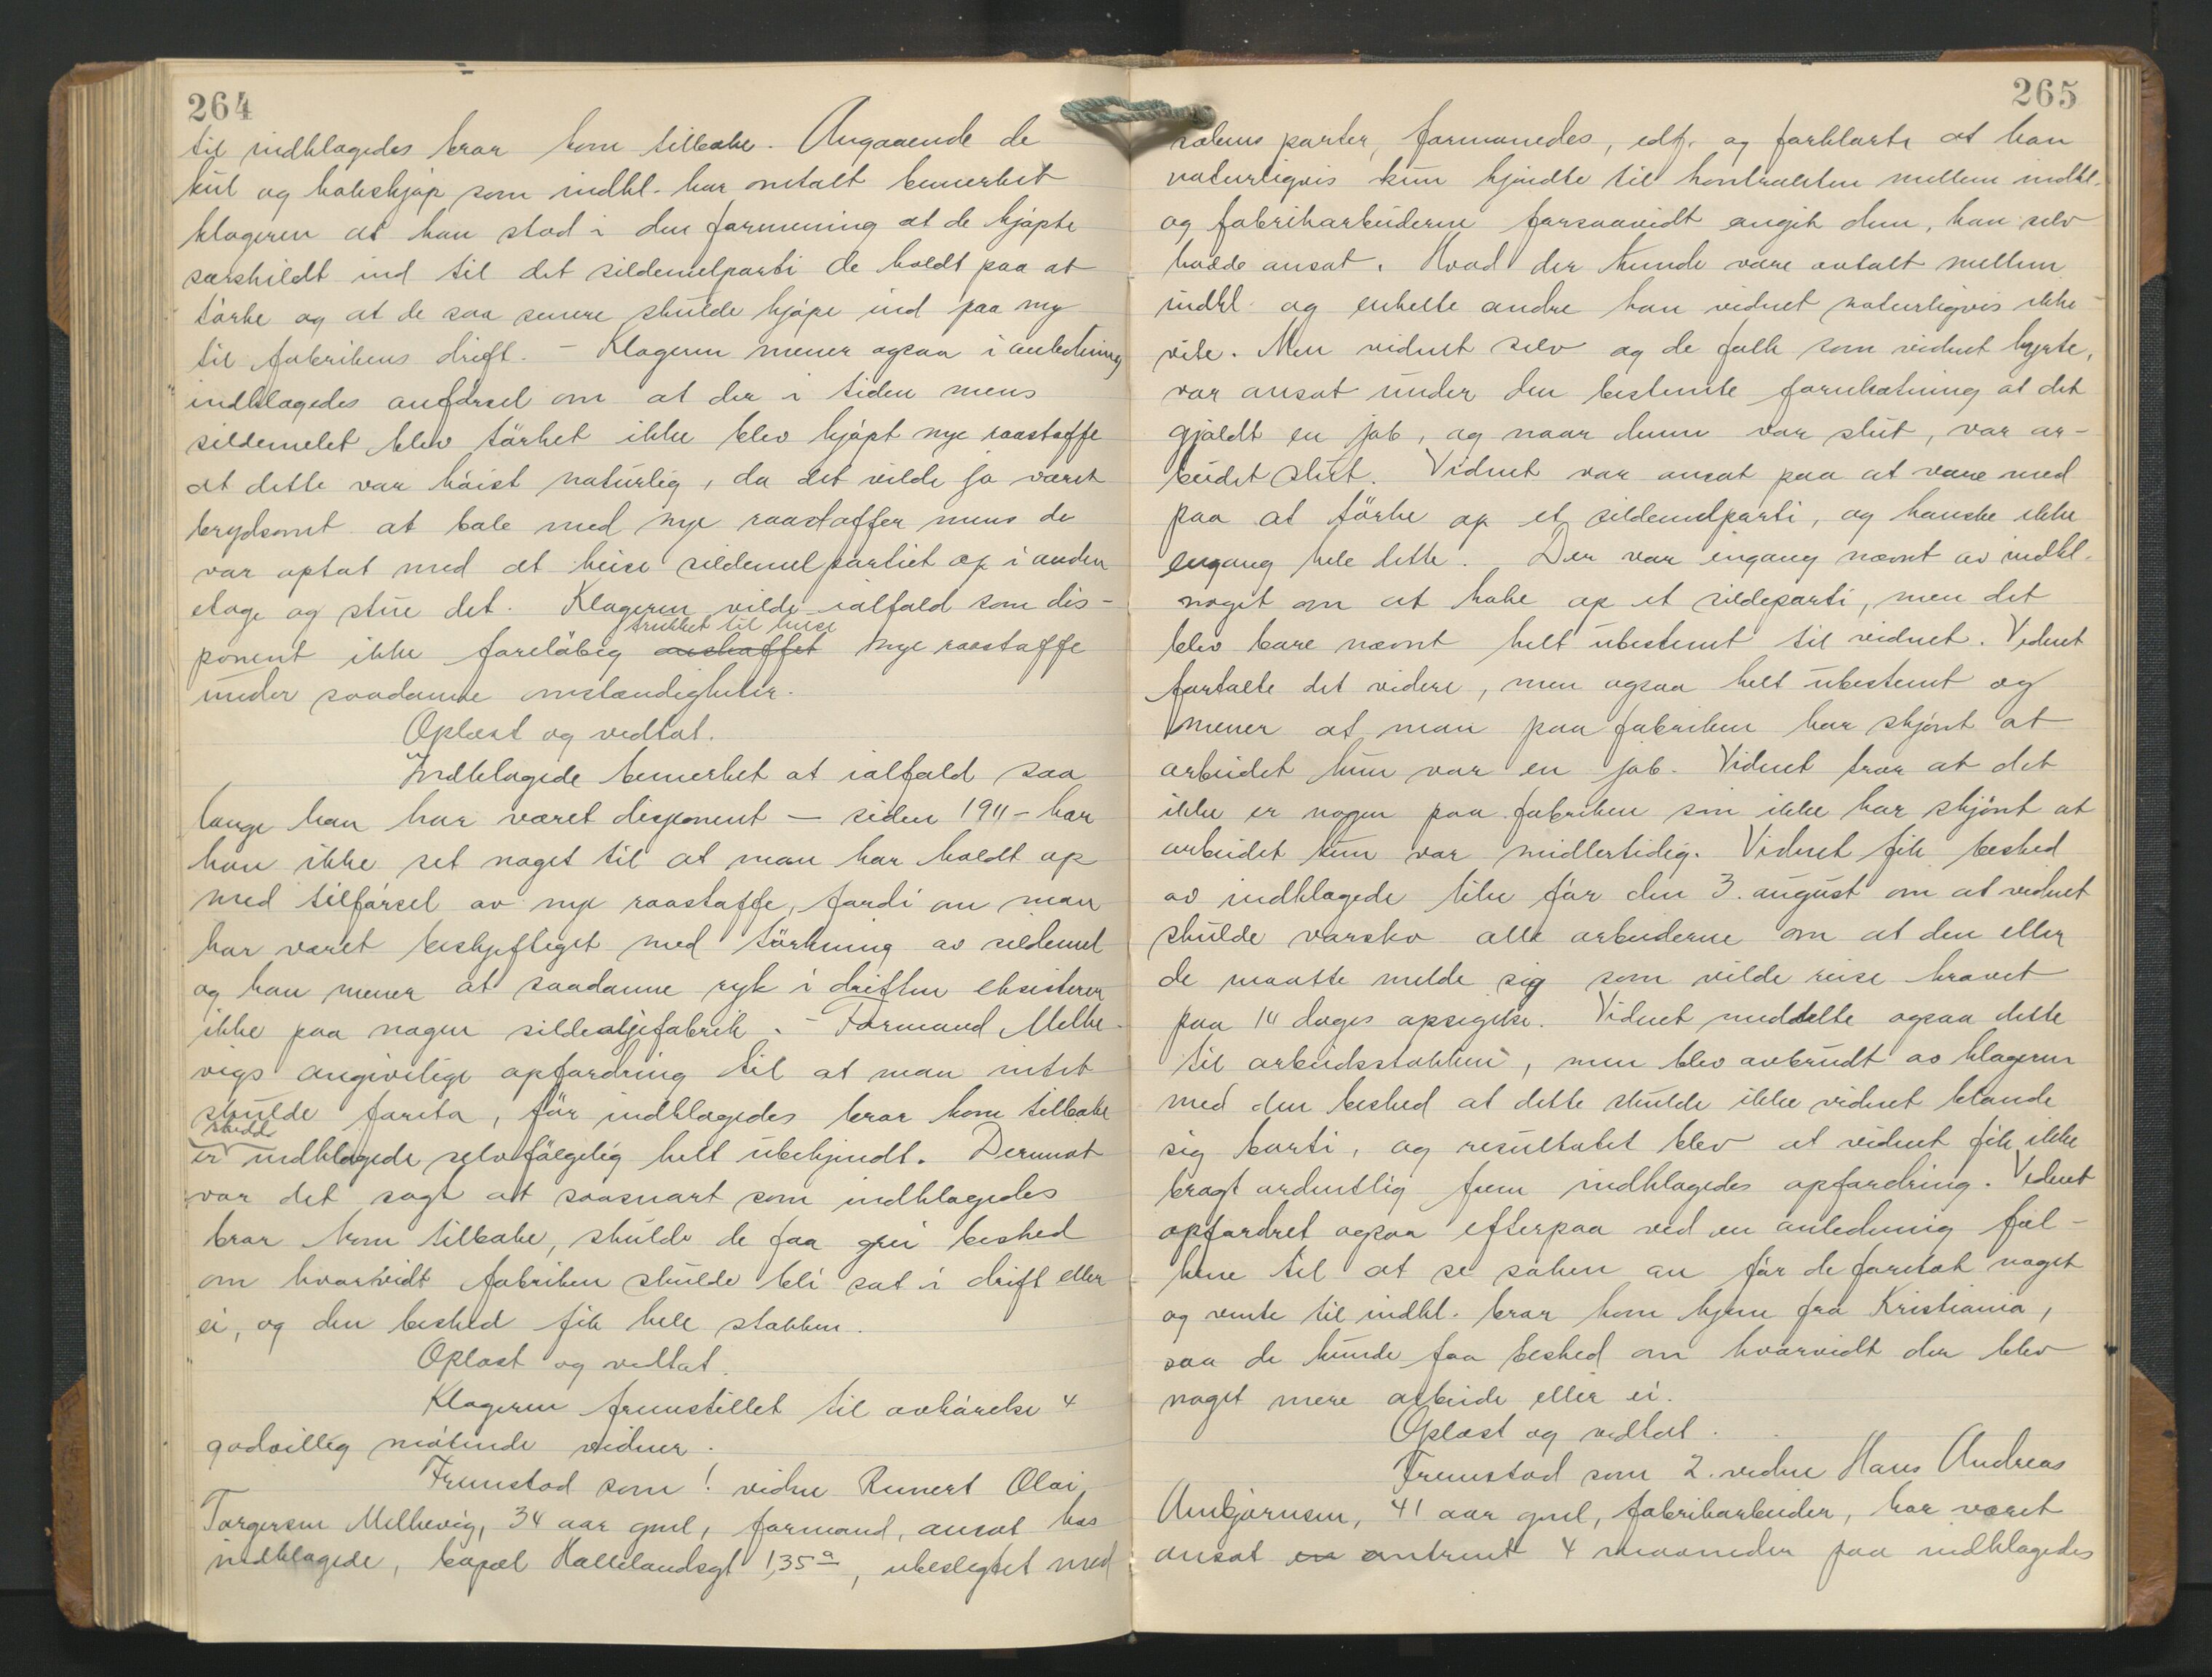 264
til indklagedes bror kom tilbake. Angaaende de
kul og kokskjøp som indkl. har omtalt bemerket
klageren at han stod i den formening at de kjøpte
særskildt ind til det sildemelparti de holdt paa at
tørke og at de saa senere skulde kjøpe ind paa ny
til fabrikens drift. - Klageren mener ogsaa i anledning
indklagedes anførsel om at der i tiden mens
sildemelet blev tørket ikke blev kjøpt nye raastoffe
at dette var høist naturlig, da det vilde jo været
brydsomt at bale med nye raastoffer mens de
var optat med at heise sildemelpartiet op i anden
etage og stue det. Klageren vilde ialfald som dis-
trukket til huse
ponent ikke foreløbig anskaffet nye raastoffe
under saadanne omstændigheter.
Oplæst og vedtat.
Indklagede bemerket at ialfald saa
længe han har været disponent — siden 1911 - har
han ikke set noget til at man har holdt op
med tilførsel av nye raastoffe, fordi om man
har været beskjeftiget med tørkning av sildemel
og han mener at saadanne ryk i driften eksisterer
ikke paa nogen sildeoljefabrik. - Formand Melke-
vigs angivelige opfordring til at man intet
skulde foreta, før indklagedes bror kom tilbake
er indklagede selvfølgelig helt ubekjendt. Derimot
var det sagt at saasnart som indklagedes
bror kom tilbake, skulde de faa grei besked
om hvorvidt fabriken skulde bli sat i drift eller
ei, og den besked fik hele stokken.
Oplæst og vedtat.
Klageren fremstillet til avhørelse 4
godvillig møtende vidner.
Fremstod som 1 vidne Runert Olai
Torgersen Melkevig, 34 aar gml, formand, ansat hos
indklagede, bopæl Hallelandsgt 135 a, ubeslegtet med
265
sakens parter, formanedes, edf. og forklarte at han
naturligvis kun kjendte til kontrakten mellem indkl.
og fabrikarbeiderne forsaavidt angik dem, han selv
hadde ansat. Hvad der kunde være avtalt mellem
indkl. og enkelte andre kan vidnet naturligvis ikke
vite. Men vidnet selv og de folk som vidnet hyrte,
var ansat under den bestemte forutsætning at det
gjaldt en job, og naar denne var slut, var ar-
beidet slut. Vidnet var ansat paa at være med
paa at tørke op et sildemelparti, og kanske ikke
engang hele dette. Der var engang nævnt av indkl.
noget om at koke op et sildeparti, men det
blev bare nævnt helt ubestemt til vidnet. Vidnet
fortalte det videre, men ogsaa helt ubestemt og
mener at man paa fabriken har skjønt at
arbeidet kun var en job. Vidnet tror at det
ikke er nogen paa fabriken som ikke har skjønt at
arbeidet kun var midlertidig. Vidnet fik besked
av indklagede like før den 3. august om at vidnet
skulde varsko alle arbeiderne om at den eller
de maatte melde sig som vilde reise kravet
paa 14 dages opsigelse. Vidnet meddelte ogsaa dette
til arbeidsstokken, men blev avbrudt av klageren
med den besked at dette skulde ikke vidnet blande
sig borti, og resultatet blev at vidnet fik ikke
bragt ordentlig frem indklagedes opfordring. Vidnet
opfordret ogsaa efterpaa ved en anledning fol-
kene til at se saken an før de foretok noget
og vente til indkl. bror kom hjem fra Kristiania,
saa de kunde faa besked om hvorvidt der blev
noget mere arbeide eller ei.
Oplæst og vedtat.
Fremstod som 2. vidne Hans Andreas
Ambjørnsen, 41 aar gml, fabrikarbeider, har været
ansat en omtrent 4 maaneder paa indklagedes